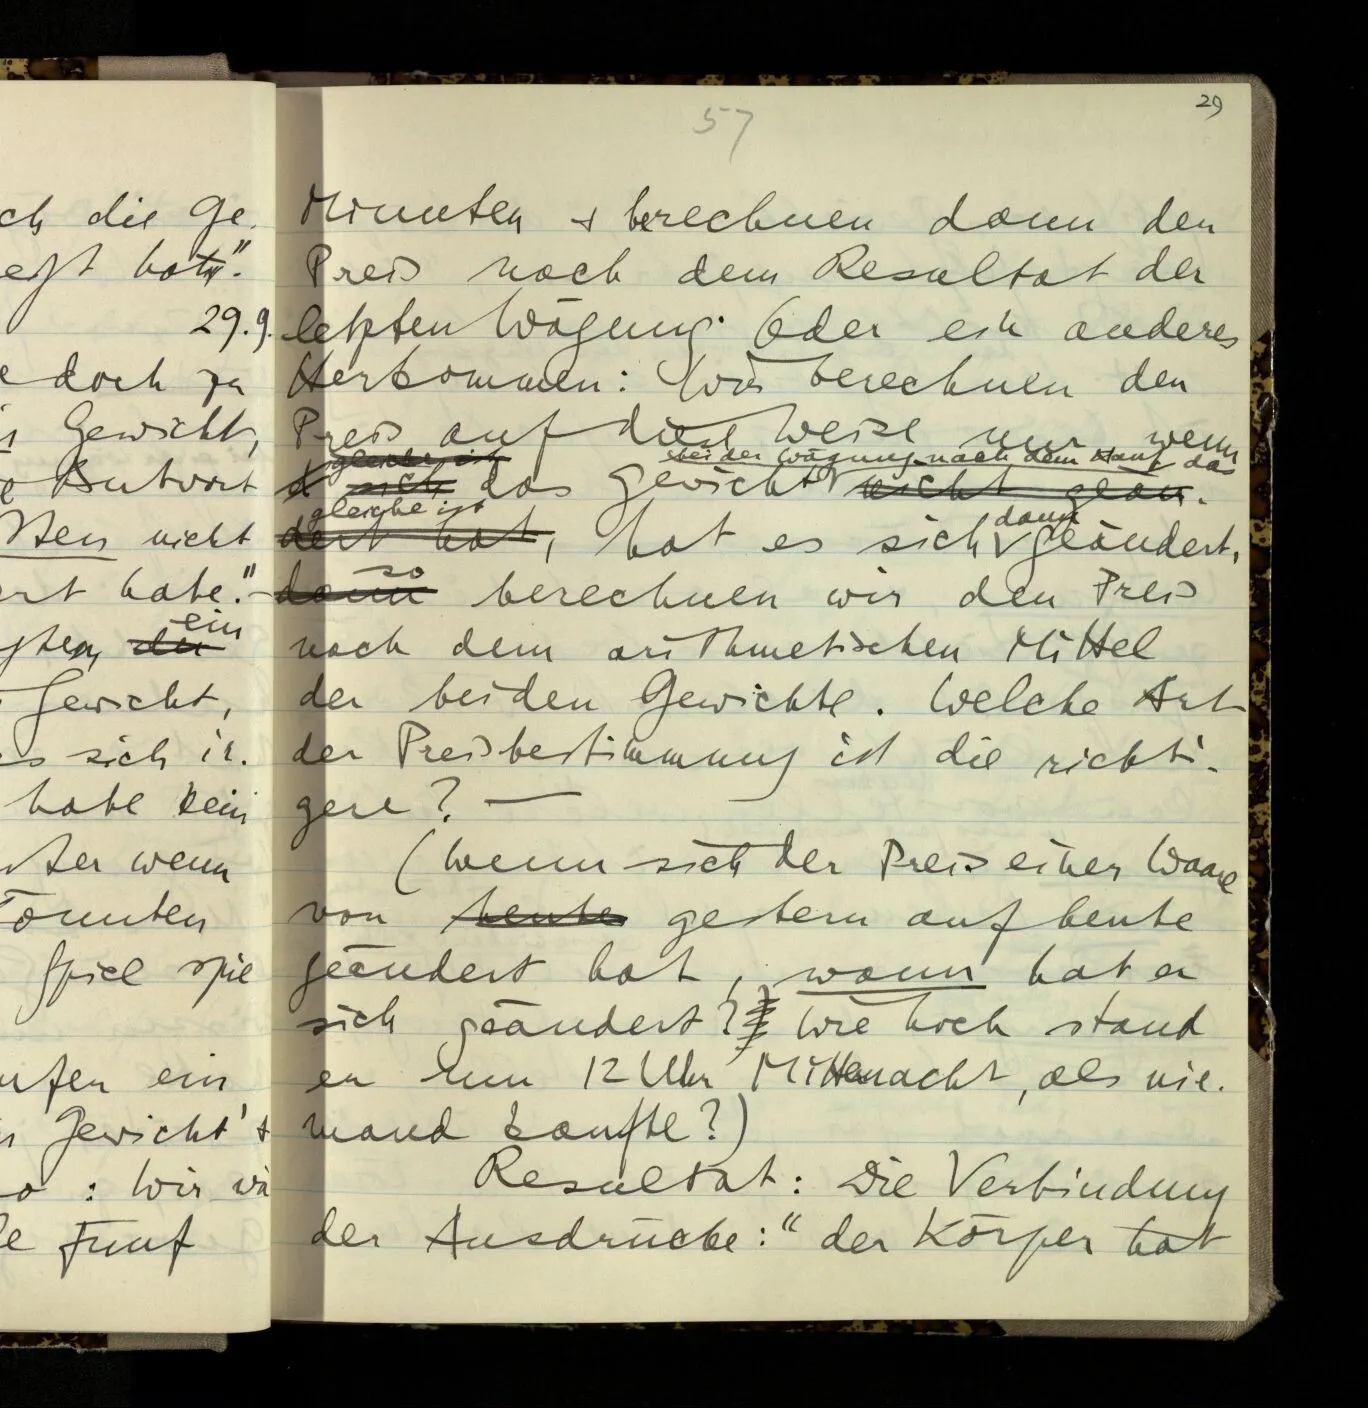 57
29
ch die Ge-
egt hat".
29.9.
doch zu
Gewicht,
Antwort
Sten nicht
ert habe." –
ein
der
Gewicht,
sich ir-
habe kein
ter wenn
könnten
Spiel spie
ufen ein
Gewicht's
: Wir wä
fünf
Minuten & berechnen dann den
Preis nach dem Resultat der
letzten Wägung. Oder ein anderes
Herkommen: Wir berechnen den
Preis auf diese Weise nur, wenn
gleiche ist bei der Wägung nach dem Kauf das
sich das Gewicht nicht geän-
gleiche ist dann
dert hat, hat es sich geändert,
so
dann berechnen wir den Preis
nach dem arithmetischen Mittel
der beiden Gewichte. Welche Art
der Preisbestimmung ist die richti-
gere? —
(Wenn sich der Preis einer Waare
von heute gestern auf heute
geändert hat, wann hat er
sich geändert? Wie hoch stand
er um 12 Uhr Mitternacht, als nie-
mand kaufte?)
Resultat: Die Verbindung
der Ausdrücke: "der Körper hat